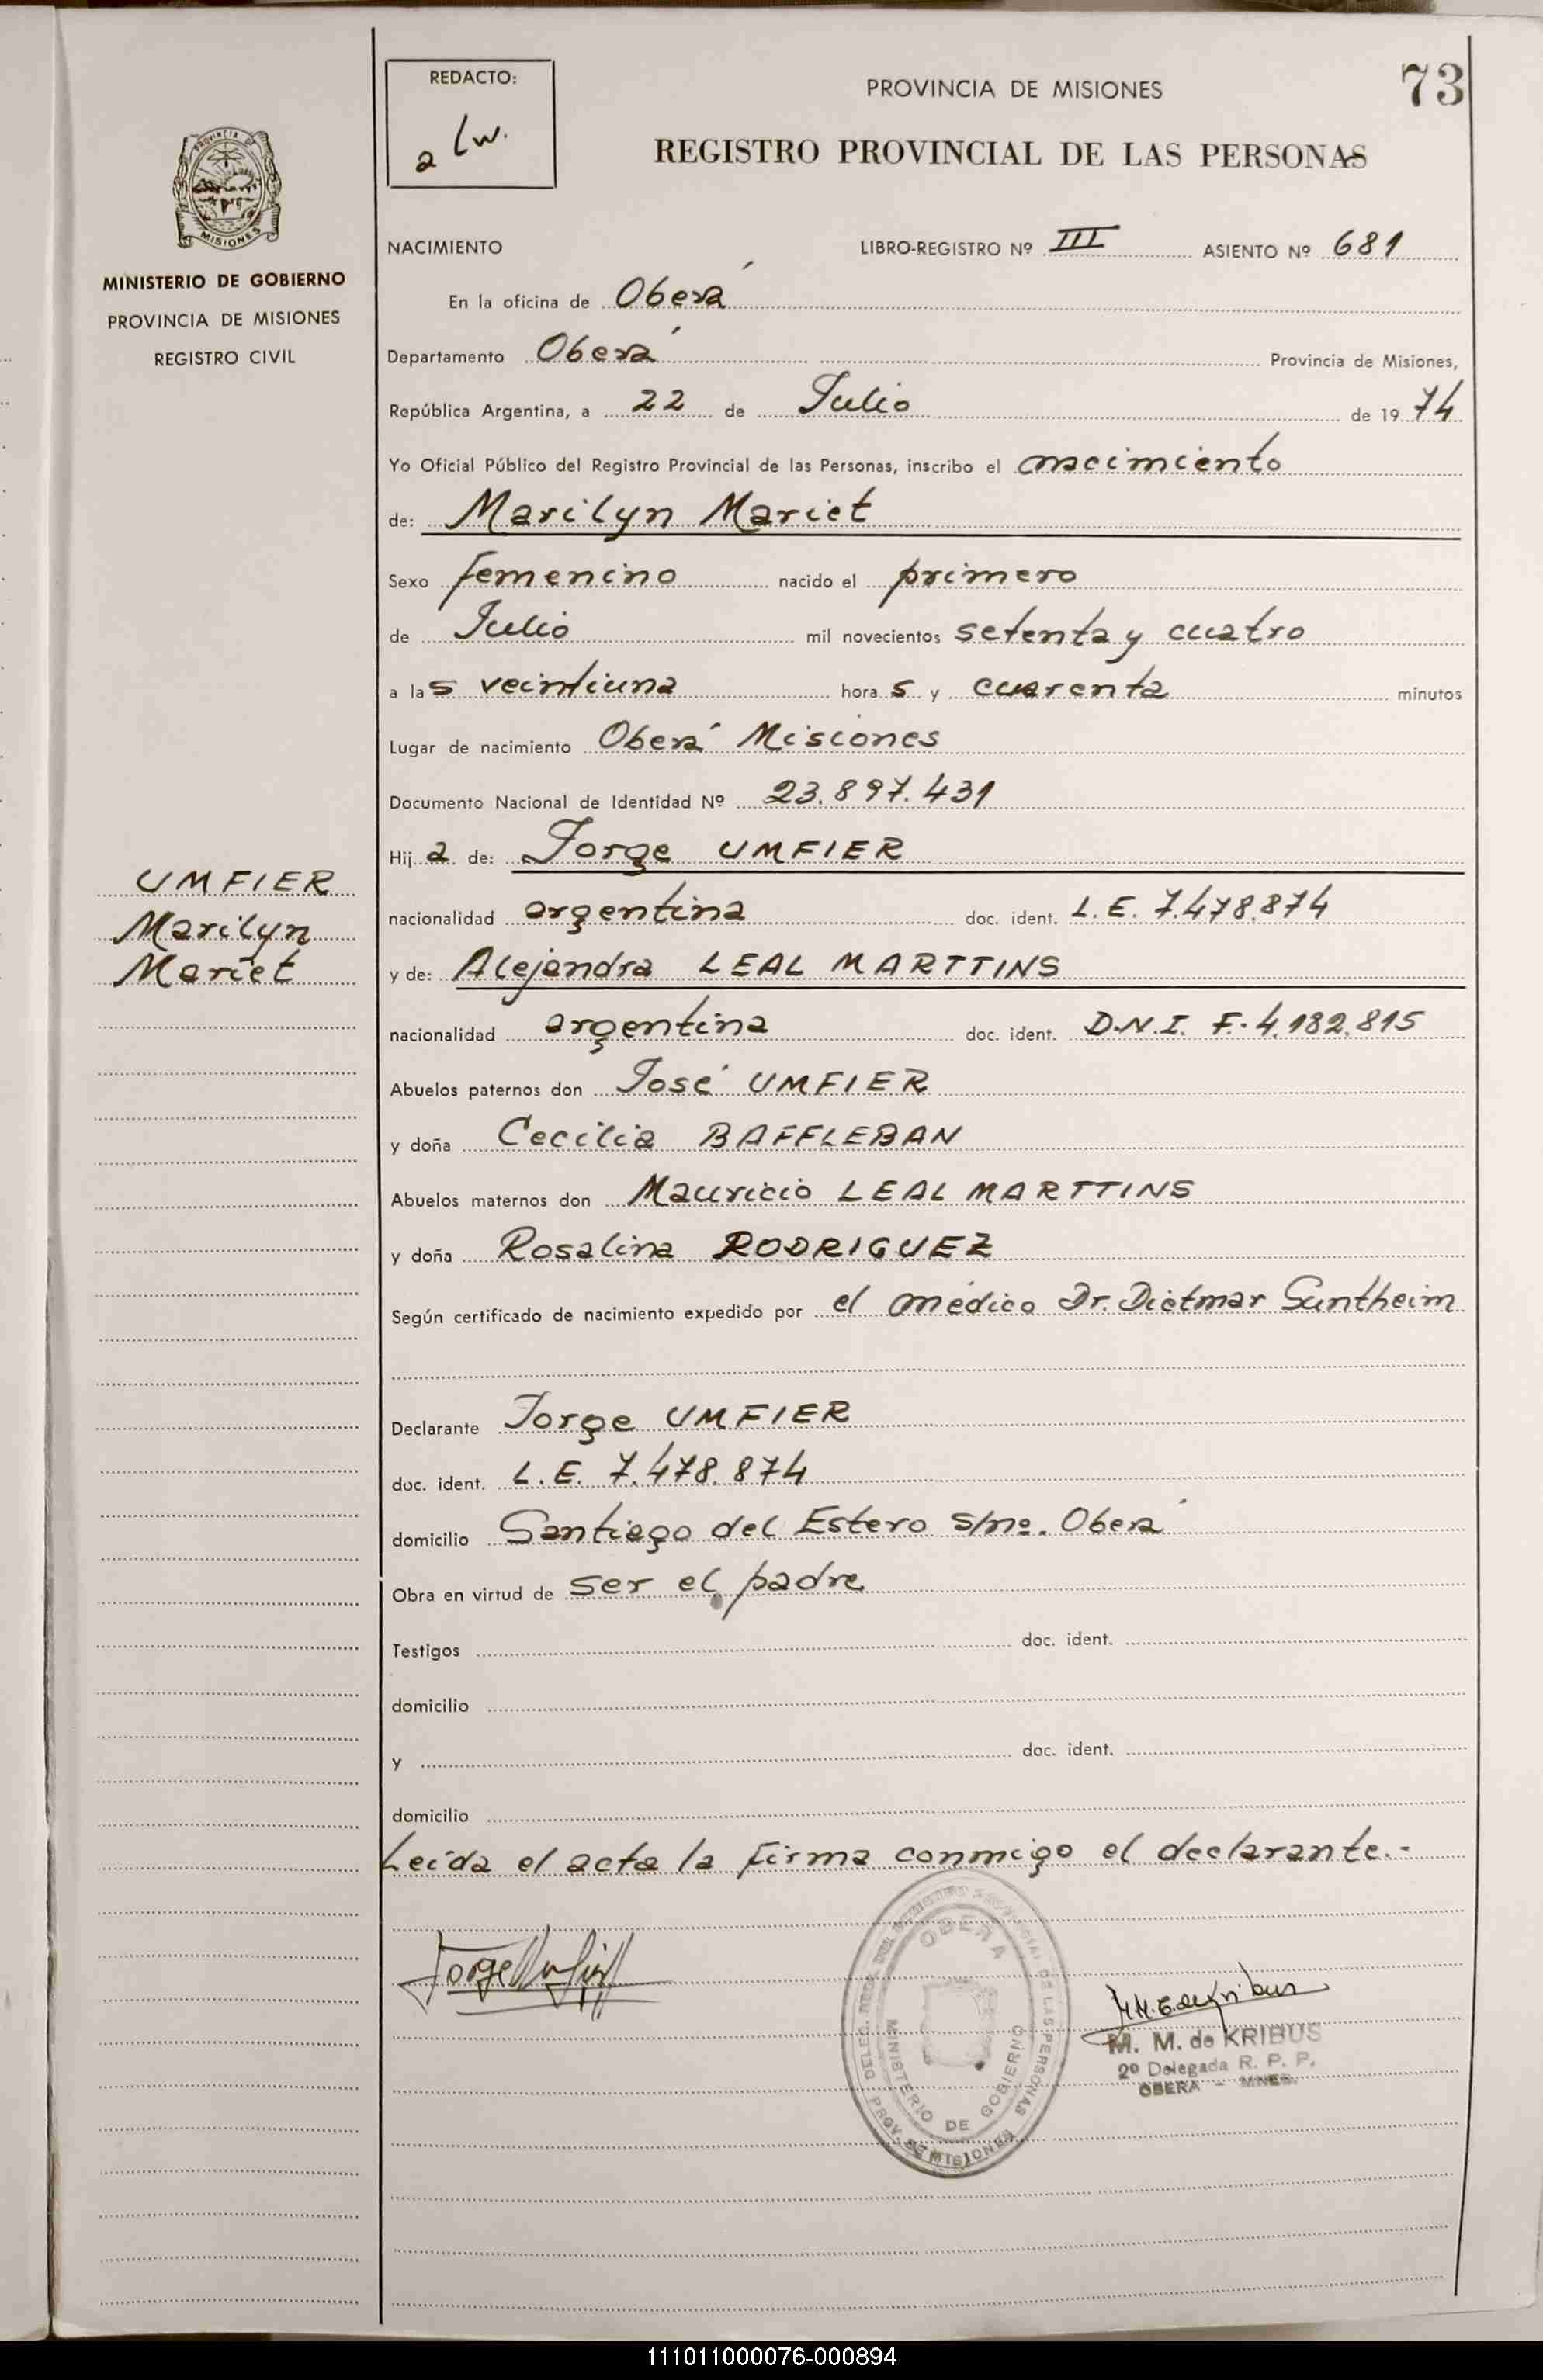 73
REDACTO:
PROVINCIA DE MISIONES
REGISTRO PROVINCIAL DE LAS PERSONAS
PROVINCIA DE
MISIONES
MINISTERIO DE GOBIERNO
PROVINCIA DE MISIONES
REGISTRO CIVIL
NACIMIENTO LIBRO-REGISTRO Nº III ASIENTO Nº 681
En la oficina de Oberá
Departamento Oberá Provincia de Misiones,
República Argentina, a 22 de Julio de 1974
Yo Oficial Público del Registro Provincial de las Personas, inscribo el nacimiento
de: Marilyn Mariet
Sexo femenino nacido el primero
de Julio mil novecientos setenta y cuatro
a las veintiuna horas y cuarenta minutos
Lugar de nacimiento Oberá Misiones
Documento Nacional de Identidad Nº 23.897.431
Hija de: Jorge UMFIER
UMFIER
Marilyn
Mariet
nacionalidad argentina doc. ident. L.E. 7.478.874
y de: Alejandra LEAL MARTTINS
nacionalidad argentina doc. ident. D.N.I. F. 4.182.815
Abuelos paternos don José UMFIER
y doña Cecilia BAFFLEBAN
Abuelos maternos don Mauricio LEAL MARTTINS
y doña Rosalina RODRIGUEZ
Según certificado de nacimiento expedido por el médico Dr. Dietmar Suntheim
Declarante Jorge UMFIER
doc. ident. L.E. 7.478.874
domicilio Santiago del Estero s/nº. Oberá
Obra en virtud de ser el padre
Testigos doc. ident.
domicilio
y doc. ident.
domicilio
Leída el acta la firma conmigo el declarante.-
OBERA
MINISTERIO DE GOBIERNO
PROV. DE MISIONES
M. M. de KRIBUS
2º Delegada R. P. P.
OBERA - MNES.
111011000076-000894